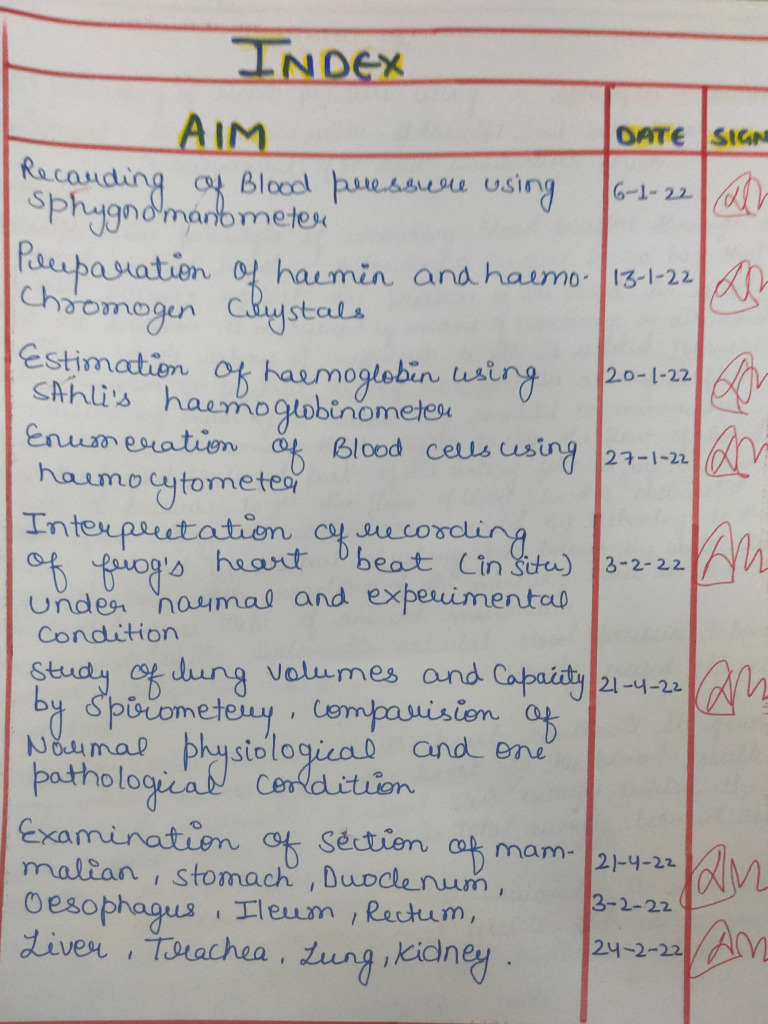 INDEX
AIM DATE SIGN
Recording of Blood pressure using
sphygnomanometer 6-1-22
Preparation of haemin and haemo-
chromogen Crystals 13-1-22
Estimation of haemoglobin using
SAhli's haemoglobinometer 20-1-22
Enumeration of Blood cells using
haemocytometer 27-1-22
Interpretation of recording
of frog's heart beat (in situ) 3-2-22
under normal and experimental
condition
Study of lung volumes and Capacity 21-4-22
by Spirometery, Comparision of
Normal physiological and one
pathological condition
Examination of section of mam-
malian, stomach, Duodenum, 21-4-22
Oesophagus, Ileum, Rectum, 3-2-22
Liver, Trachea, Lung, Kidney. 24-2-22